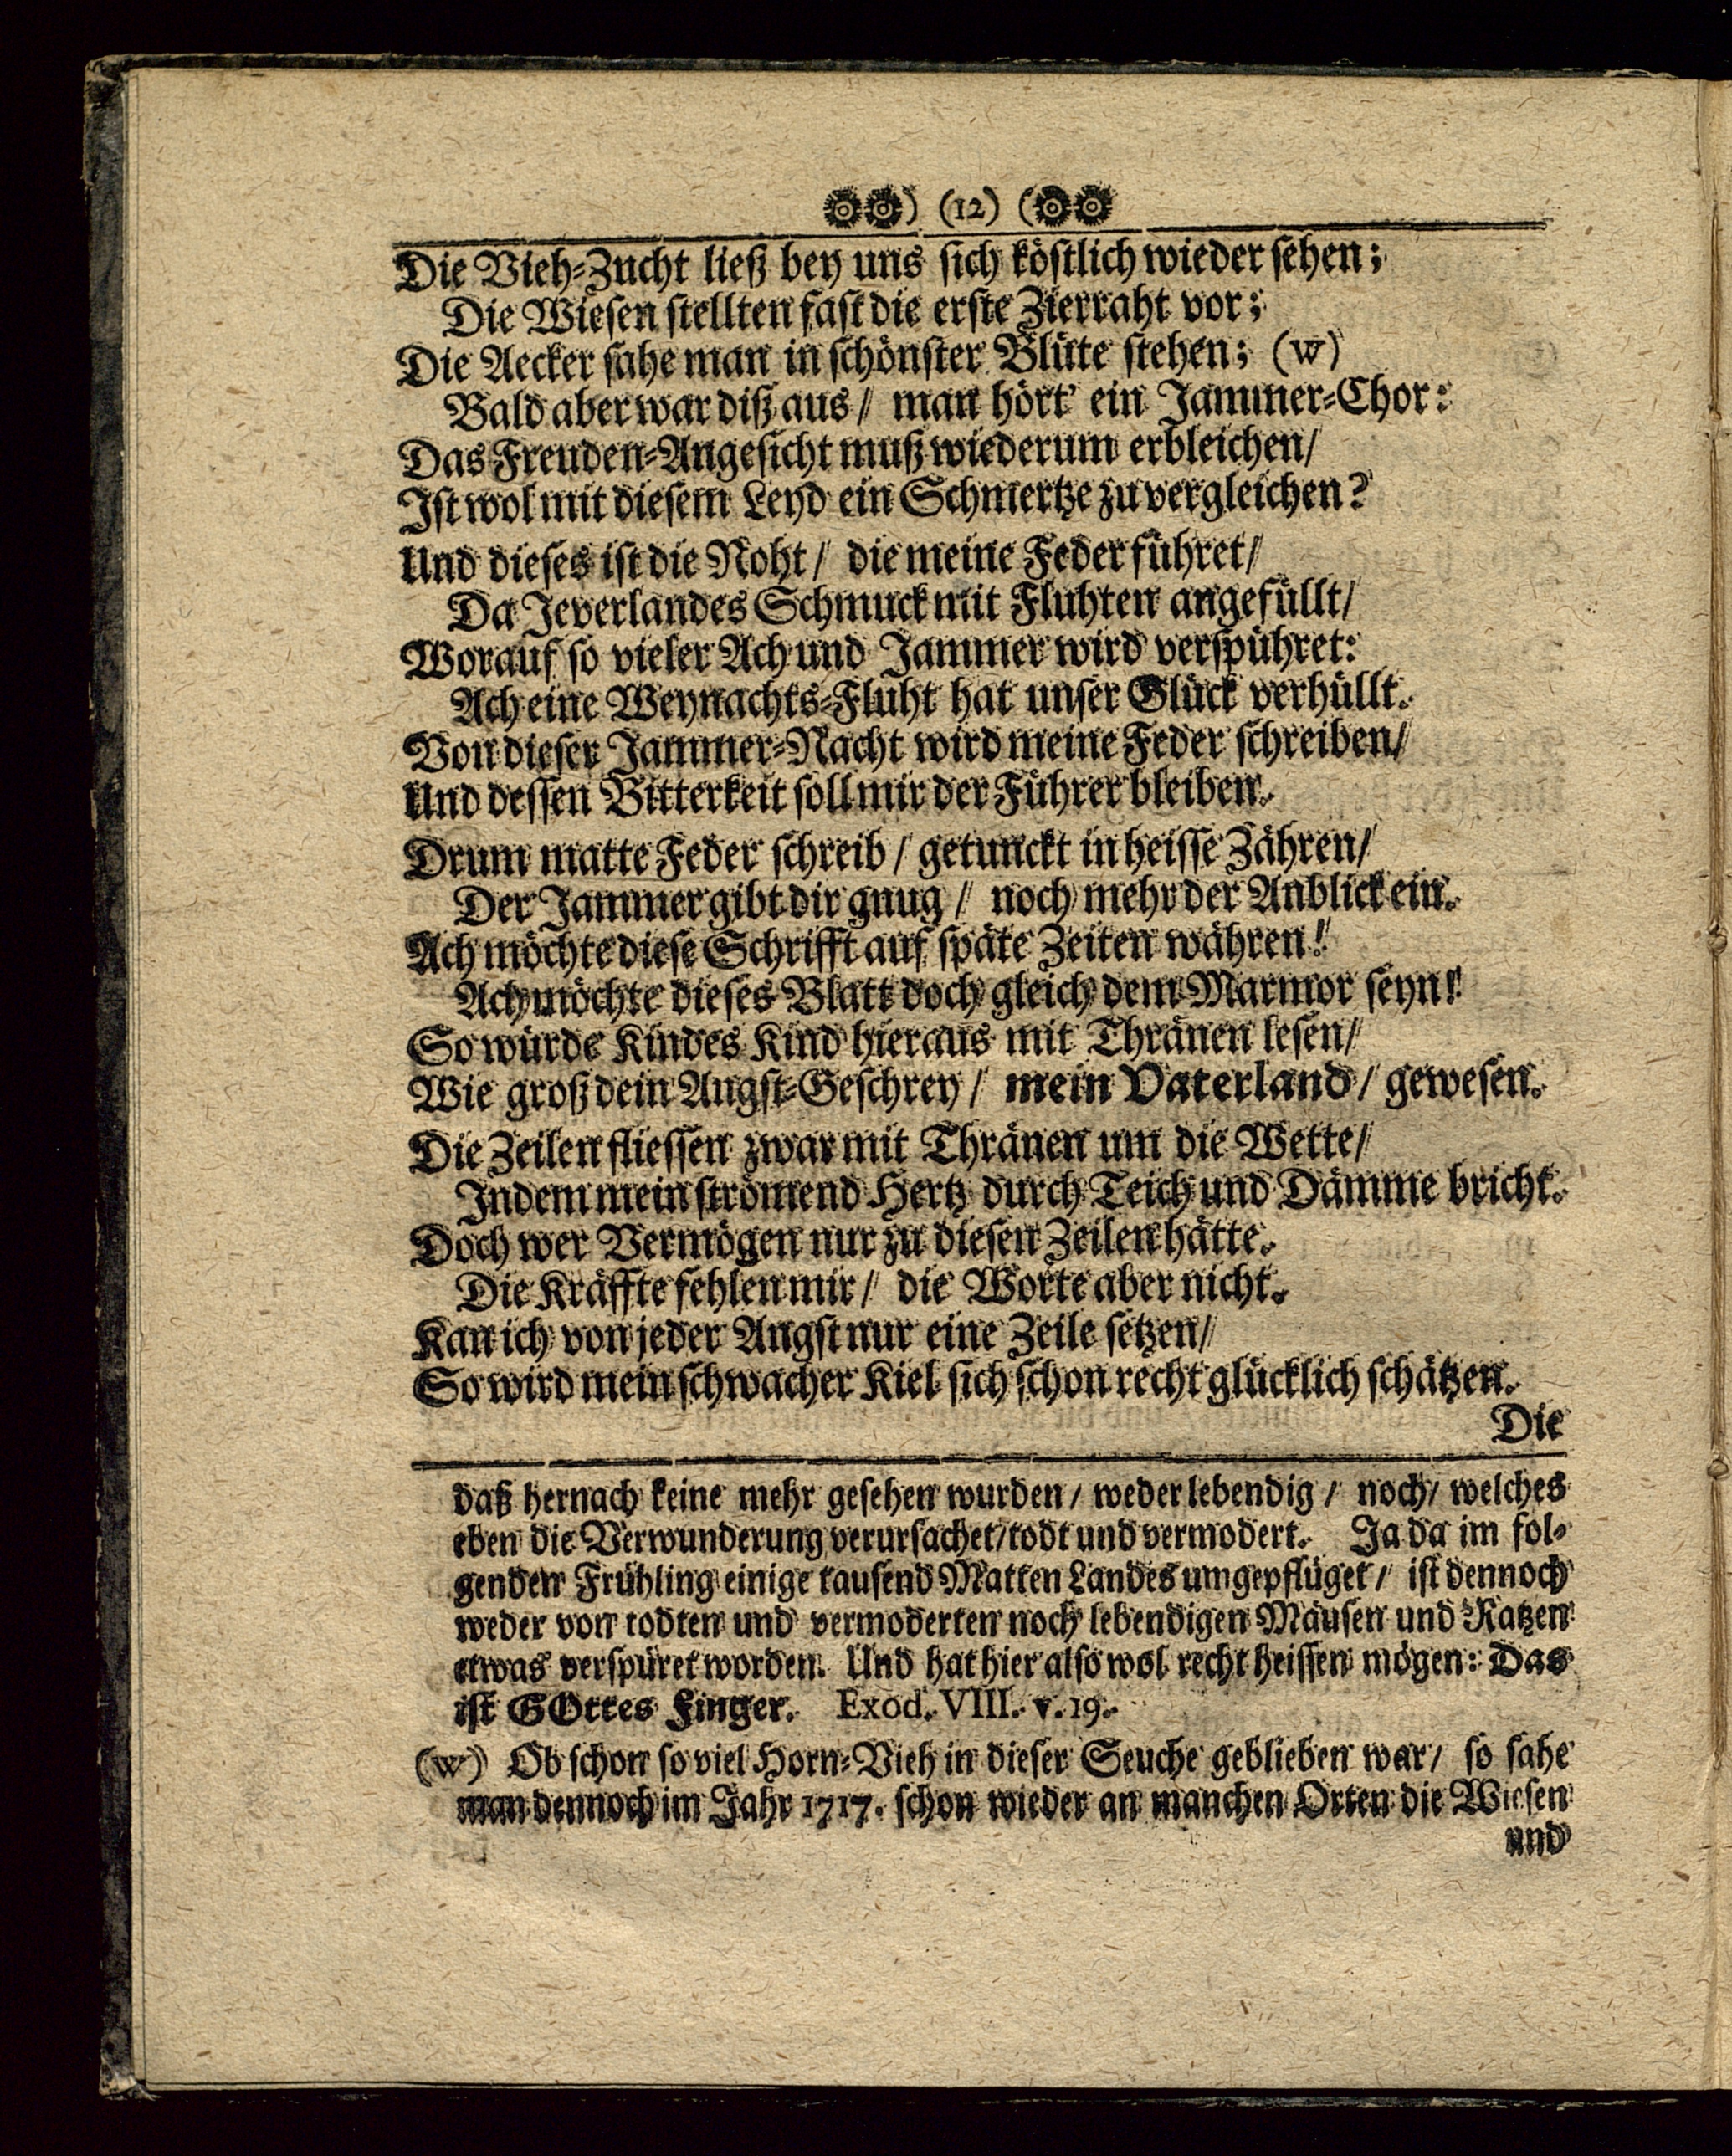 ) (12) (
Die Vieh-Zucht ließ bey uns sich köstlich wieder sehen;
Die Wiesen stellten fast die erste Zierraht vor;
Die Aecker sahe man in schönster Blüte stehen; (w)
Bald aber war diß aus / man hört' ein Jammer-Chor:
Das Freuden-Angesicht muß wiederum erbleichen/
Ist wol mit diesem Leyd ein Schmertze zu vergleichen?
Und dieses ist die Noht / die meine Feder führet/
Da Jeverlandes Schmuck mit Fluhten angefüllt/
Worauf so vieler Ach und Jammer wird verspühret:
Ach eine Weynachts-Fluht hat unser Glück verhüllt.
Von dieser Jammer-Nacht wird meine Feder schreiben/
Und dessen Bitterkeit soll mir der Führer bleiben.
Drum matte Feder schreib / getunckt in heisse Zähren/
Der Jammer gibt dir gnug / noch mehr der Anblick ein.
Ach möchte diese Schrifft auf späte Zeiten währen!
Ach möchte dieses Blatt doch gleich dem Marmor seyn!
So würde Kindes Kind hieraus mit Thränen lesen/
Wie groß dein Angst-Geschrey / mein Vaterland / gewesen.
Die Zeilen fliessen zwar mit Thränen um die Wette/
Indem mein strömend Hertz durch Teich und Dämme bricht.
Doch wer Vermögen nur zu diesen Zeilen hätte.
Die Kräffte fehlen mir / die Worte aber nicht.
Kan ich von jeder Angst nur eine Zeile setzen/
So wird mein schwacher Kiel sich schon recht glücklich schätzen.
Die
daß hernach keine mehr gesehen wurden / weder lebendig / noch / welches
eben die Verwunderung verursachet/todt und vermodert. Ja da im fol-
genden Frühling einige tausend Matten Landes umgepflüget / ist dennoch
weder von todten und vermoderten noch lebendigen Mäusen und Ratzen
etwas verspüret worden. Und hat hier also wol recht heissen mögen: Das
ist GOttes Finger. Exod. VIII. v. 19.
(w) Ob schon so viel Horn-Vieh in dieser Seuche geblieben war / so sahe
man dennoch im Jahr 1717. schon wieder an manchen Orten die Wiesen
und